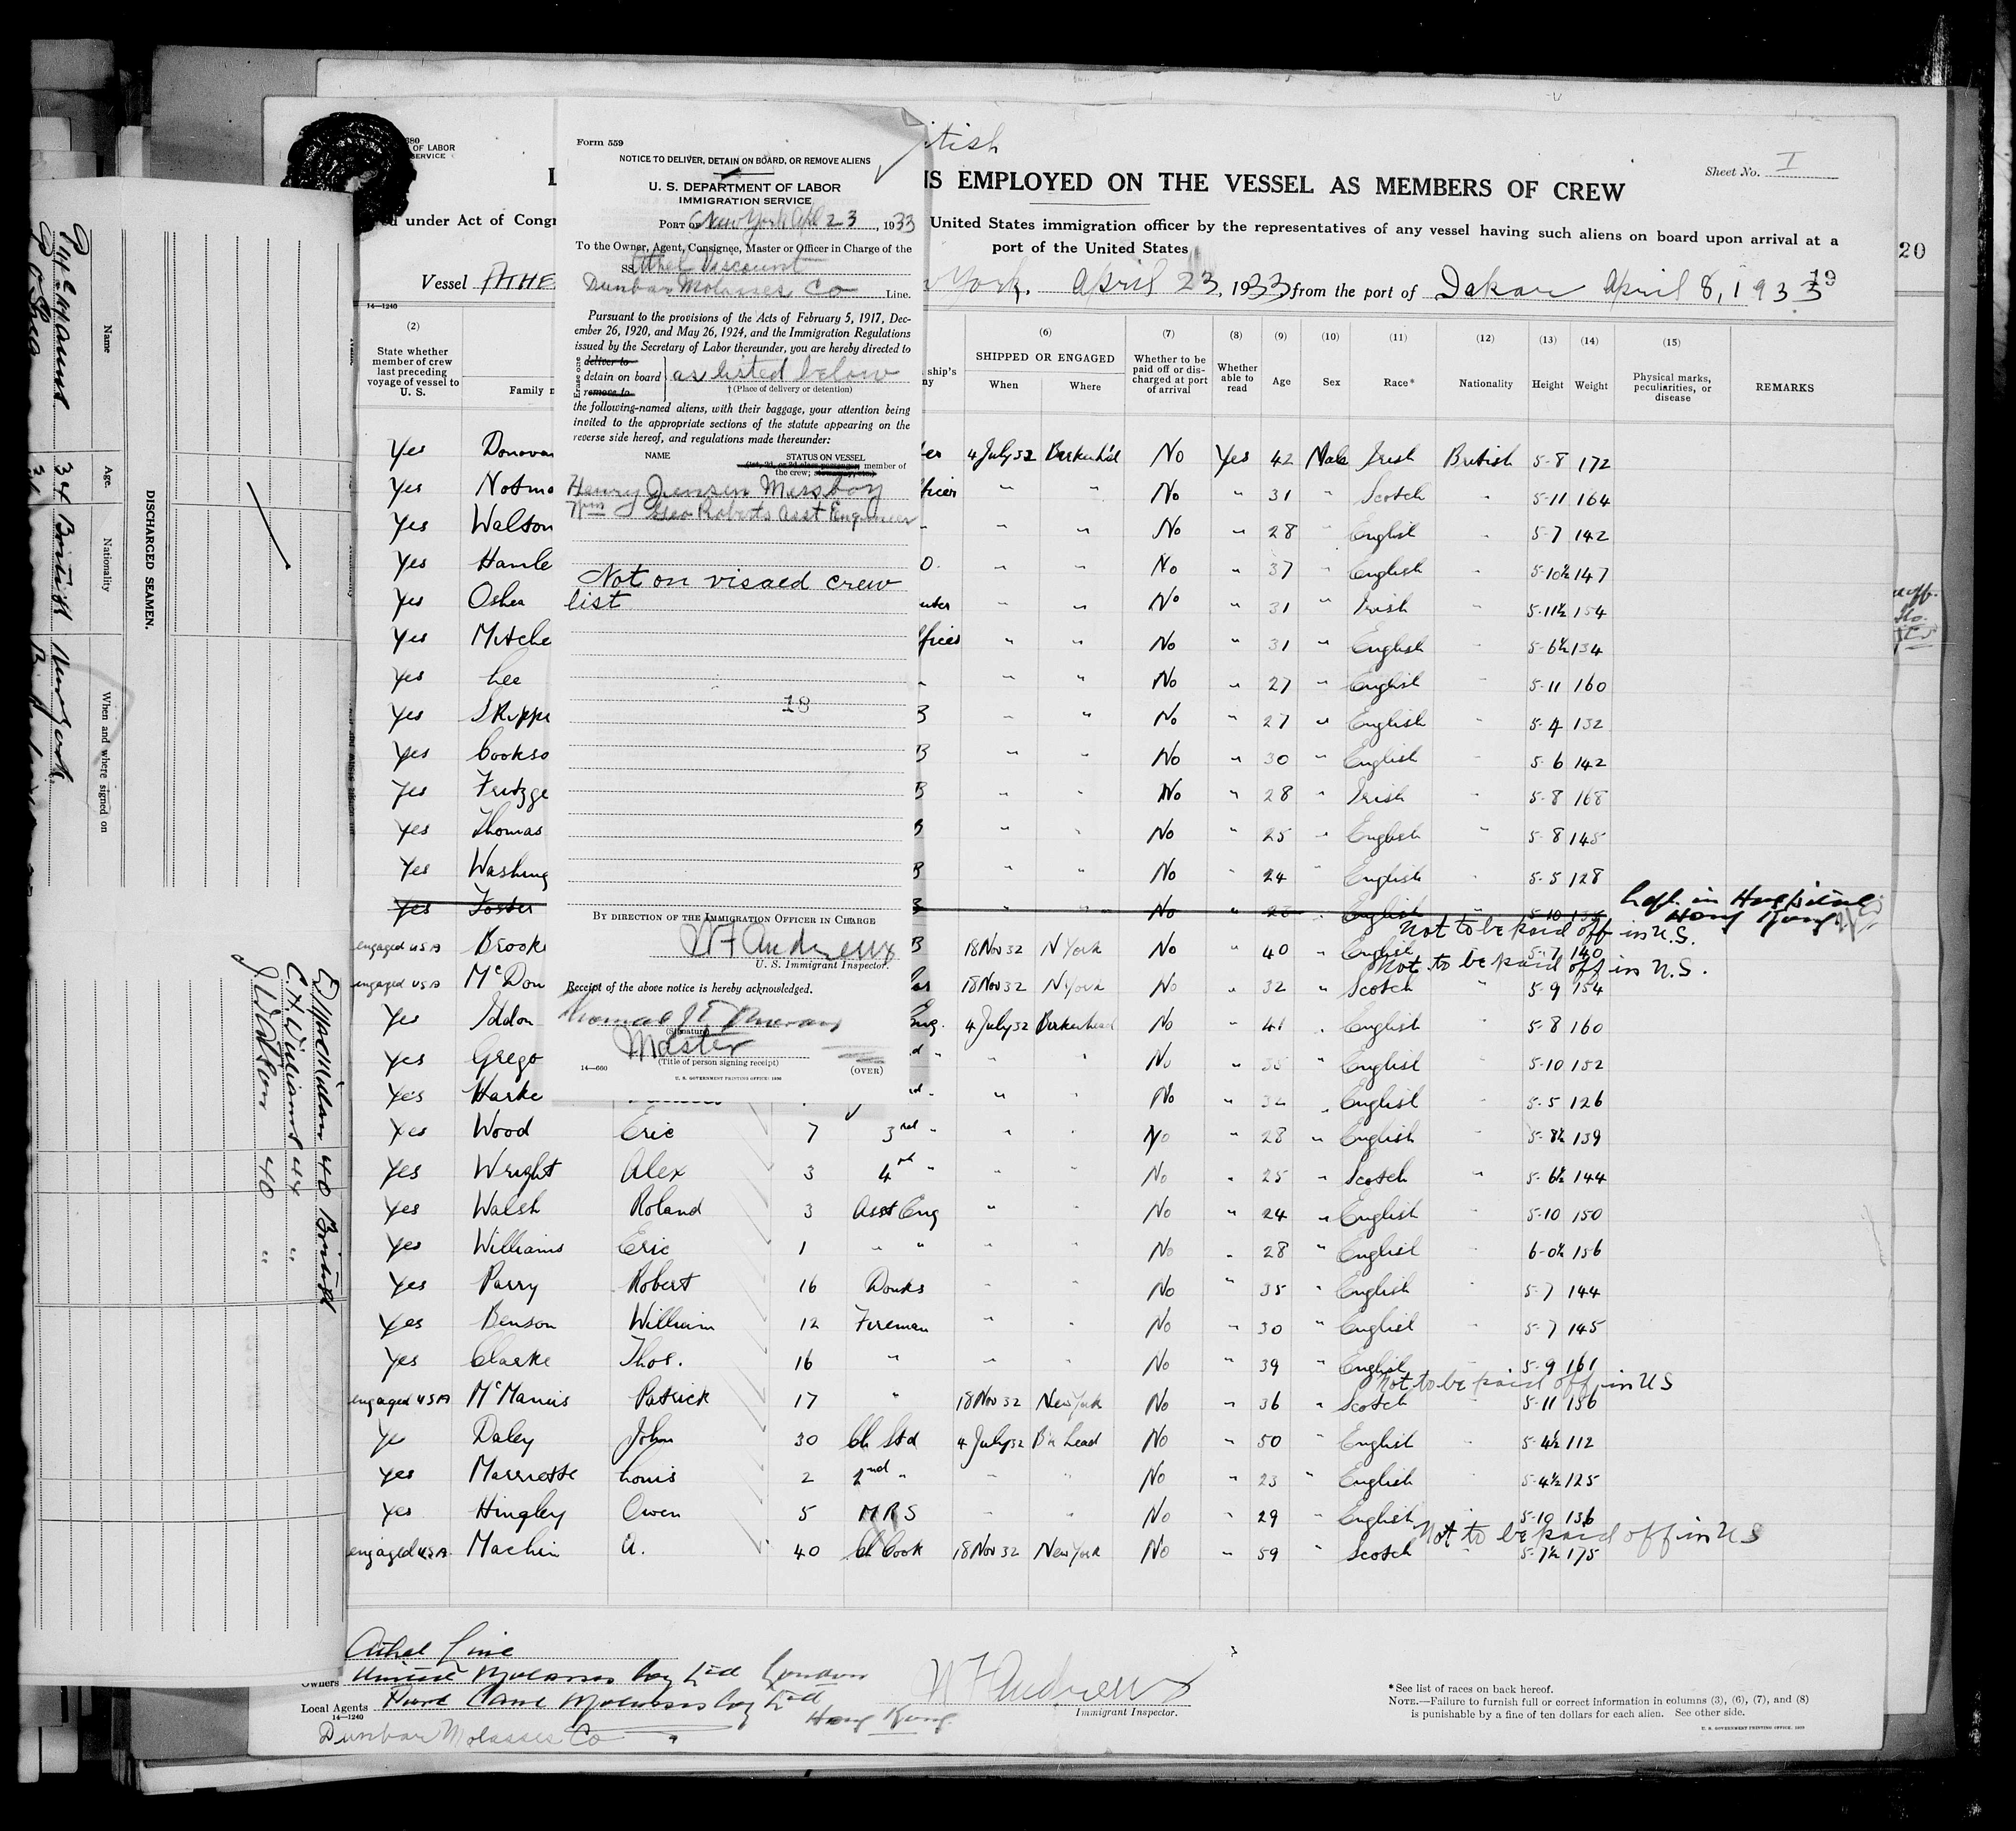 20
British
Sheet No. I
IS EMPLOYED ON THE VESSEL AS MEMBERS OF CREW
680
OF LABOR
SERVICE
under Act of Congr
United States immigration officer by the representatives of any vessel having such aliens on board upon arrival at a
port of the United States
Vessel ATHE
York. April 23, 1933, from the port of Dakar April 8, 1933
14—1240
(2) (6) (7) (8) (9) (10) (11) (12) (13) (14) (15)
State whether member of crew last preceding voyage of vessel to U. S.
Family n
ship's
SHIPPED OR ENGAGED
When Where
Whether to be paid off or discharged at port of arrival
Whether able to read
Age Sex Race* Nationality Height Weight
Physical marks, peculiarities, or disease
REMARKS
Form 559
NOTICE TO DELIVER, DETAIN ON BOARD, OR REMOVE ALIENS
U. S. DEPARTMENT OF LABOR
IMMIGRATION SERVICE
PORT OF New York Apl 23, 1933
To the Owner, Agent, Consignee, Master or Officer in Charge of the
SS Athel Viscount
Dunbar Molasses Co Line.
Pursuant to the provisions of the Acts of February 5, 1917, Dec-
ember 26, 1920, and May 26, 1924, and the Immigration Regulations
issued by the Secretary of Labor thereunder, you are hereby directed to
Erase one
deliver to
detain on board as listed below
remove to
† (Place of delivery or detention)
the following-named aliens, with their baggage, your attention being
invited to the appropriate sections of the statute appearing on the
reverse side hereof, and regulations made thereunder:
NAME STATUS ON VESSEL
(1st, 2d, or 3d class passenger, member of
the crew,
Henry Jensen Messboy
Wm Geo Roberts Asst Engineer
Not on visaed crew
list
18
BY DIRECTION OF THE IMMIGRATION OFFICER IN CHARGE
W F Andrews
U. S. Immigrant Inspector.
Receipt of the above notice is hereby acknowledged.
(Signature)
Master
(Title of person signing receipt)
14—660
(OVER)
U. S. GOVERNMENT PRINTING OFFICE: 1930
Yes Donovan 4 July 32 Birkenh'd No Yes 42 Male Irish British 5-8 172
Yes Notma fficer " " No " 31 " Scotch " 5-11 164
Yes Walton " " " No " 28 " English " 5-7 142
Yes Hamle O. " " No " 37 " English " 5-10½ 147
Yes Oshea " " No " 31 " Irish " 5-11½ 154
Yes Mitche fficer " " No " 31 " English " 5-6½ 134
Yes Lee " " " No " 27 " English " 5-11 160
Yes Skippe B " " No " 27 " English " 5-4 132
Yes Cookso B " " No " 30 " English " 5-6 142
Yes Fritzge B " " No " 28 " Irish " 5-8 168
Yes Thomas B " " No " 25 " English " 5-8 145
Yes Washing B " " No " 24 " English " 5-5 128
Yes Foster B " " No " 23 " English 5-10 Left in Hospital
Hong Kong
Not to be paid off in U.S.
engaged USA Brook B 18 Nov 32 N York No " 40 " English 5-7 140
Not to be paid off in U.S.
engaged USA McDon 18 Nov 32 N York No " 32 " Scotch " 5-9 154
Yes Iddon Eng. 4 July 32 Birkenhead No " 41 " English " 5-8 160
Yes Grego d " " " No " 35 " English " 5-10 152
Yes Harke " " No " 32 " English " 5-5 126
Yes Wood Eric 7 3rd " " " No " 28 " English " 5-8½ 139
Yes Wright Alex 3 4th " " " No " 25 " Scotch " 5-6½ 144
Yes Walsh Roland 3 Asst Eng " " No " 24 " English 5-10 150
Yes Williams Eric 1 " " " " No " 28 " English " 6-0½ 156
Yes Parry Robert 16 Donks " " No " 35 " English 5-7 144
Yes Benson William 12 Fireman " " No " 30 " English " 5-7 145
Yes Clarke Thos. 16 " " " No " 39 " English 5-9 161
Not to be paid off in US
engaged USA McManus Patrick 17 " 18 Nov 32 New York No " 36 " Scotch " 5-11 156
Yes Daley John 30 Ch Std 4 July 32 B'n head No " 50 " English " 5-4½ 112
Yes Marriotte Louis 2 2nd " " " No " 23 " English " 5-4½ 125
Yes Hingley Owen 5 MRS " " No " 29 " English 5-10 136
Not to be paid off in US
engaged USA. Machin A. 40 Ch Cook 18 Nov 32 New York No " 59 " Scotch " 5-7½ 175
Athel Line
Owners United Molasses Coy Ltd London
Local Agents Pure Cane Molasses Coy Ltd
14—1240
Hong Kong.
Dunbar Molasses Co
W F Andrews
Immigrant Inspector.
*See list of races on back hereof.
NOTE.—Failure to furnish full or correct information in columns (3), (6), (7), and (8)
is punishable by a fine of ten dollars for each alien. See other side.
U. S. GOVERNMENT PRINTING OFFICE
DISCHARGED SEAMEN.
Name Age. Nationality When and where signed on
34 British New York.
P O Shea 31
40 British
C. H. Williams 44 "
J Watson 40 "